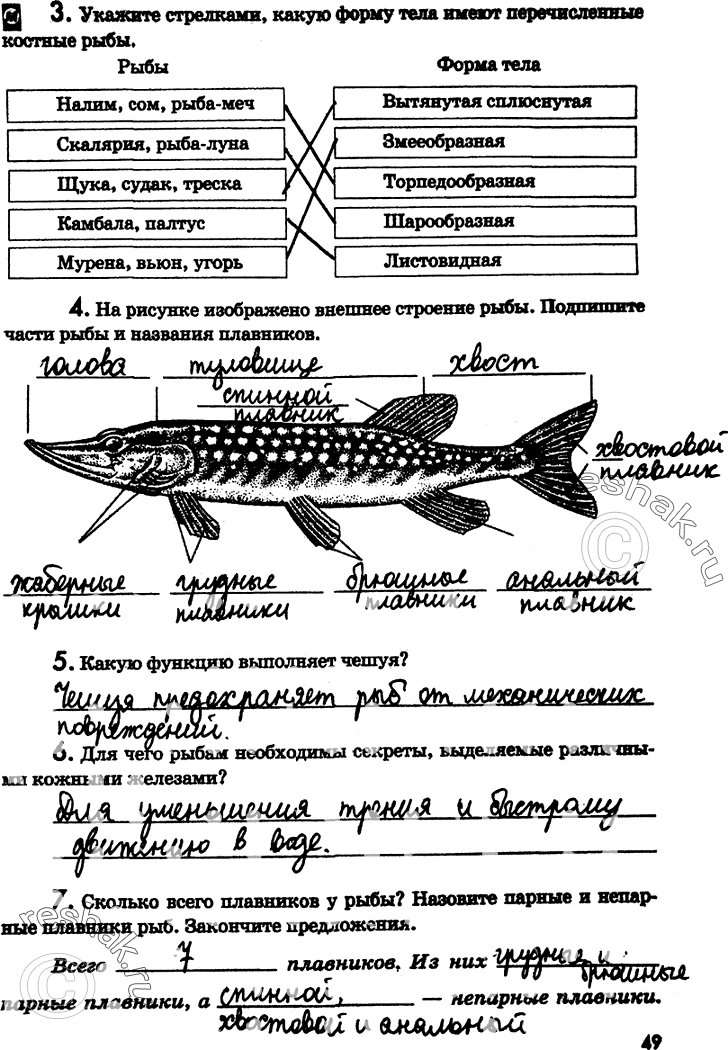 3. Укажите стрелками, какую форму тела имеют перечисленные
костные рыбы.
Рыбы
Форма тела
Налим, сом, рыба-меч
Вытянутая сплюснутая
Скалярия, рыба-луна
Змееобразная
Щука, судак, треска
Торпедообразная
Камбала, палтус
Шарообразная
Мурена, вьюн, угорь
Листовидная
4. На рисунке изображено внешнее строение рыбы. Подпишите
части рыбы и названия плавников.
голова туловище хвост
спинной
плавник
хвостовой
плавник
жаберные грудные брюшные анальный
крышки плавники плавники плавник
5. Какую функцию выполняет чешуя?
Чешуя предохраняет рыб от механических
повреждений.
6. Для чего рыбам необходимы секреты, выделяемые различны-
ми кожными железами?
Для уменьшения трения и быстрому
движению в воде.
7. Сколько всего плавников у рыбы? Назовите парные и непар-
ные плавники рыб. Закончите предложения.
Всего 7 плавников. Из них грудные и
брюшные
парные плавники, а спинной, — непарные плавники.
хвостовой и анальный
49
©reshak.ru
©reshak.ru